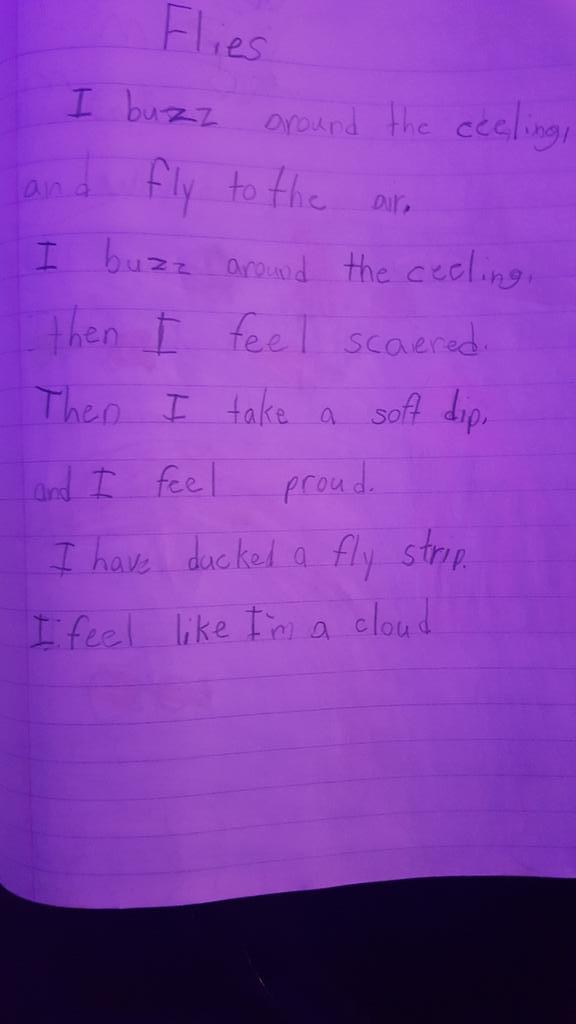 Flies
I buzz around the ceeling,
and fly to the air.
I buzz around the ceeling,
then I feel scaered.
Then I take a soft dip,
and I feel proud.
I have ducked a fly strip.
I feel like I'm a cloud